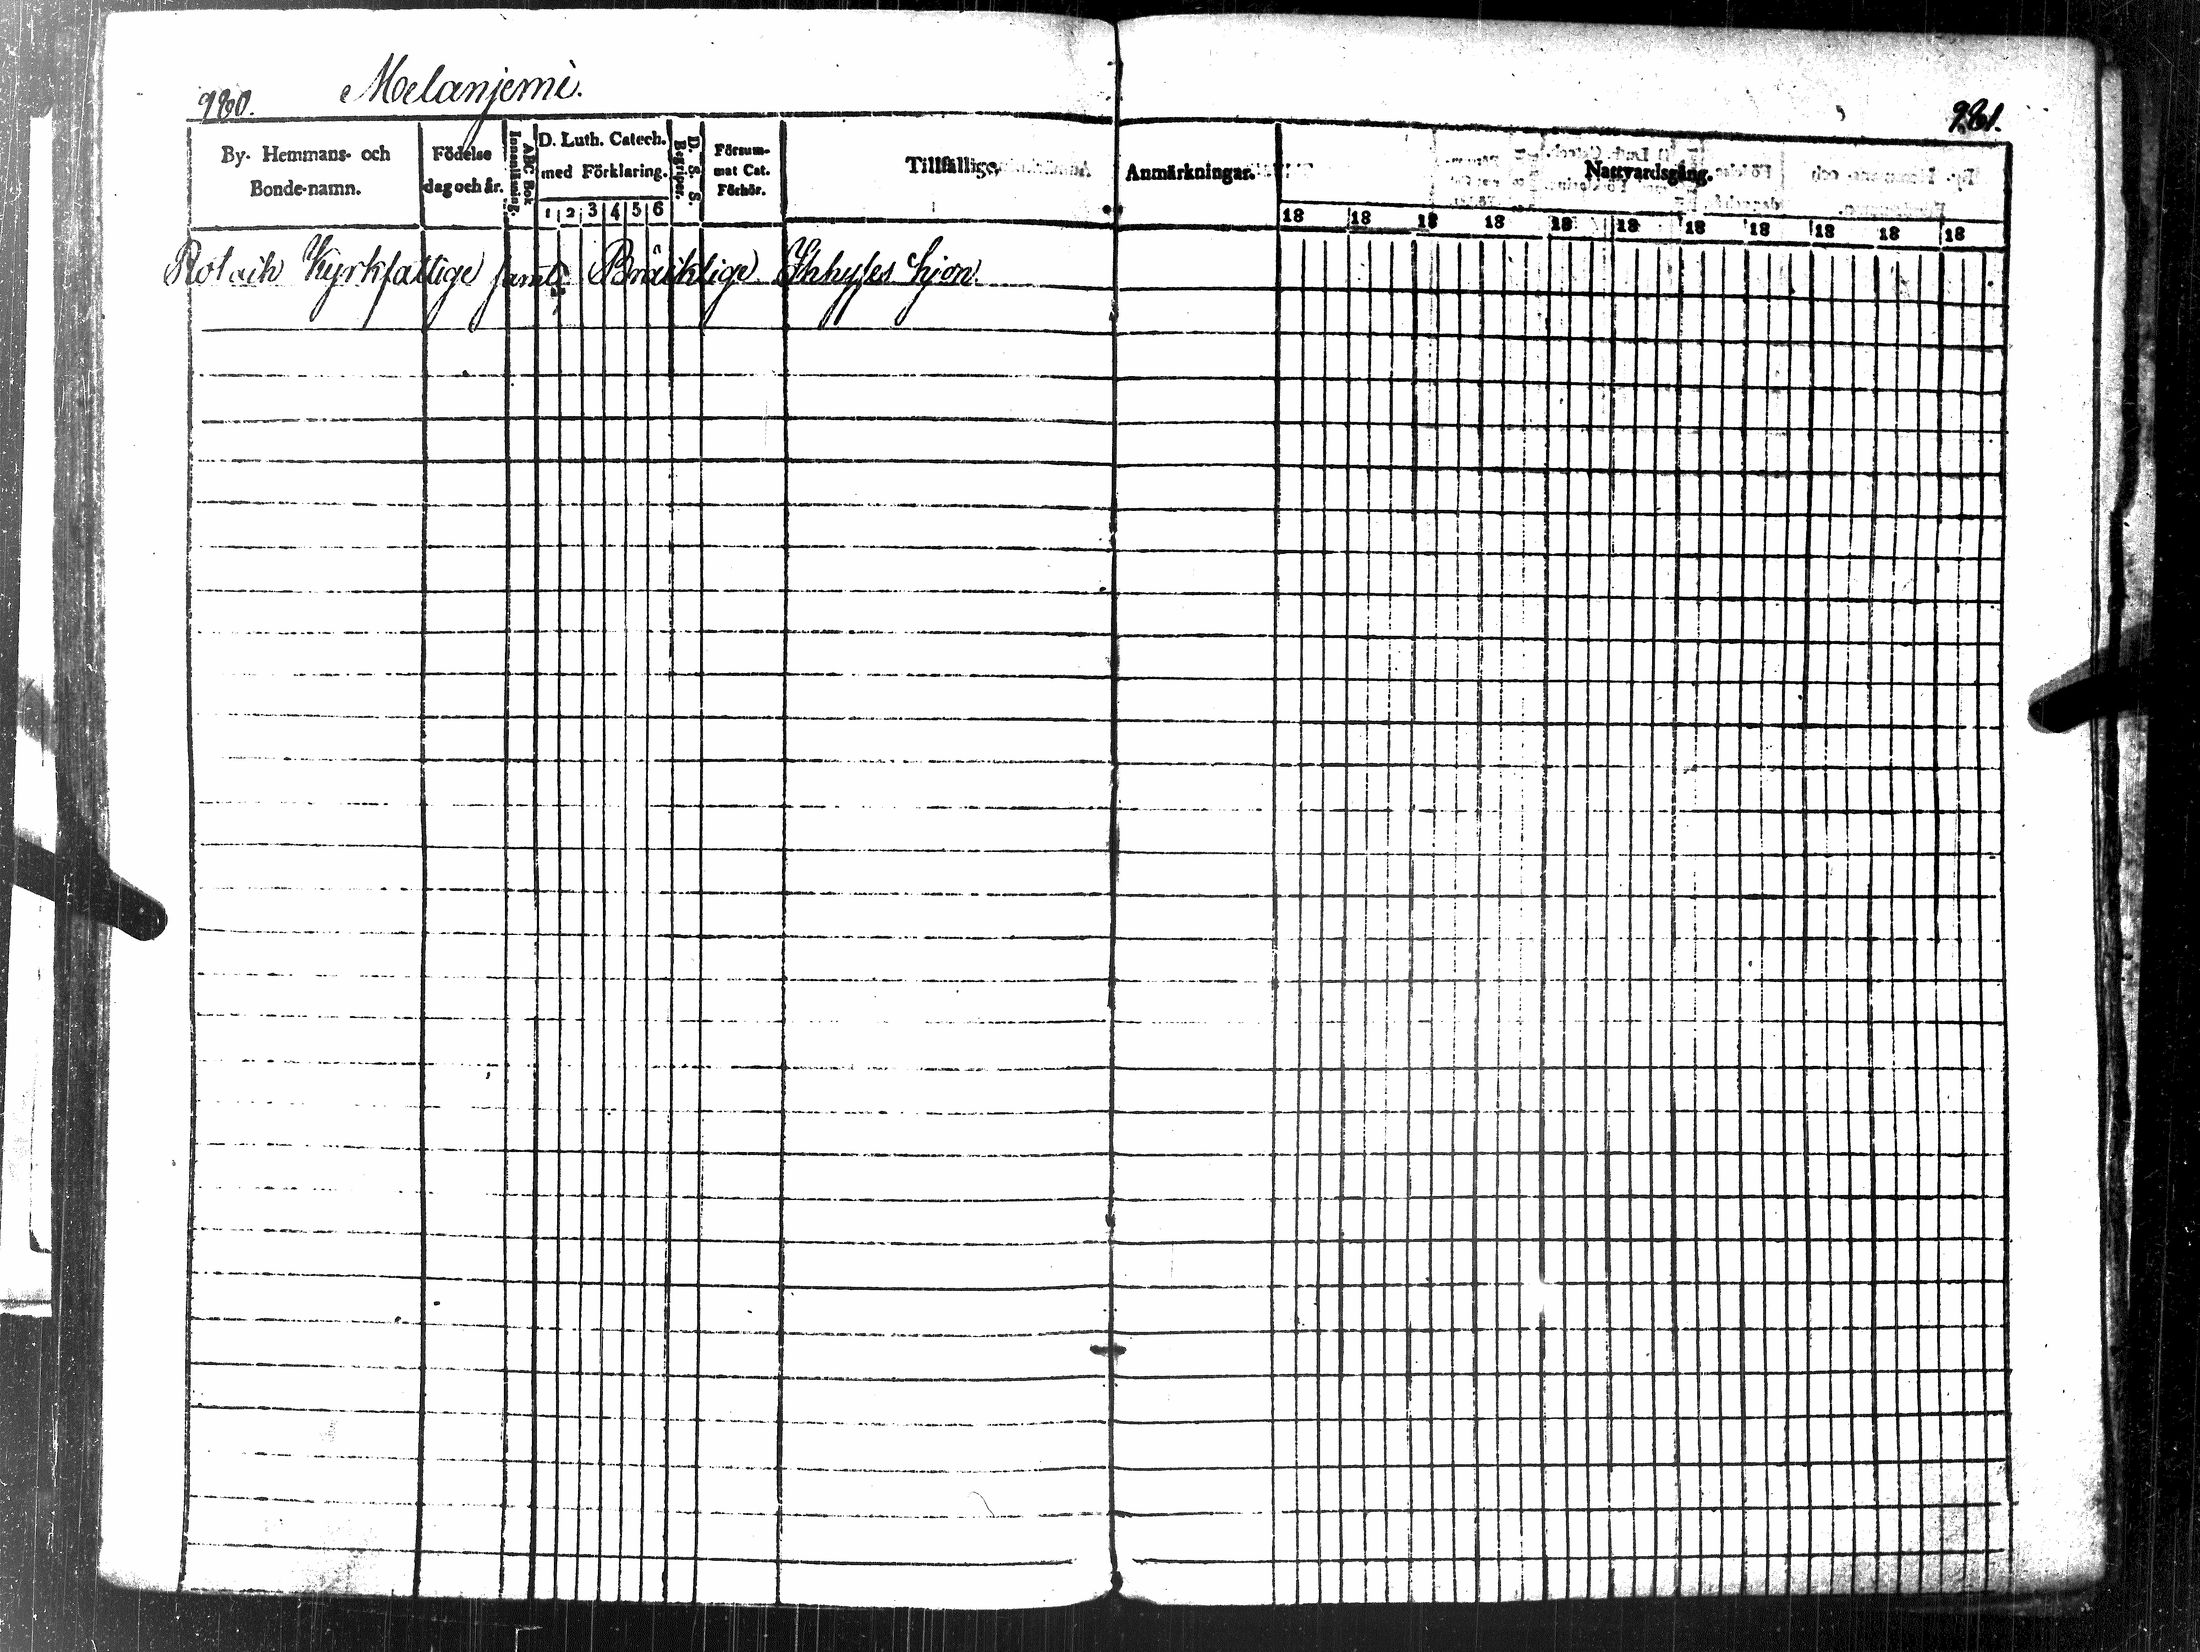 980. Melanjemi. 981.
By- Hemmans- och Bonde-namn.
Födelse dag och år.
Innanläsning.
ABC Bok
D. Luth. Catech. med Förklaring.
1 2 3 4 5 6
Begriper.
D. S. S. S.
Försummat Cat. Förhör.
Tillfällige
Anmärkningar.
Nattvardsgång.
18 18 18 18 18 18 18 18 18 18 18
Rot och Kyrkfattige samt Bräcklige Inhyses hjon.